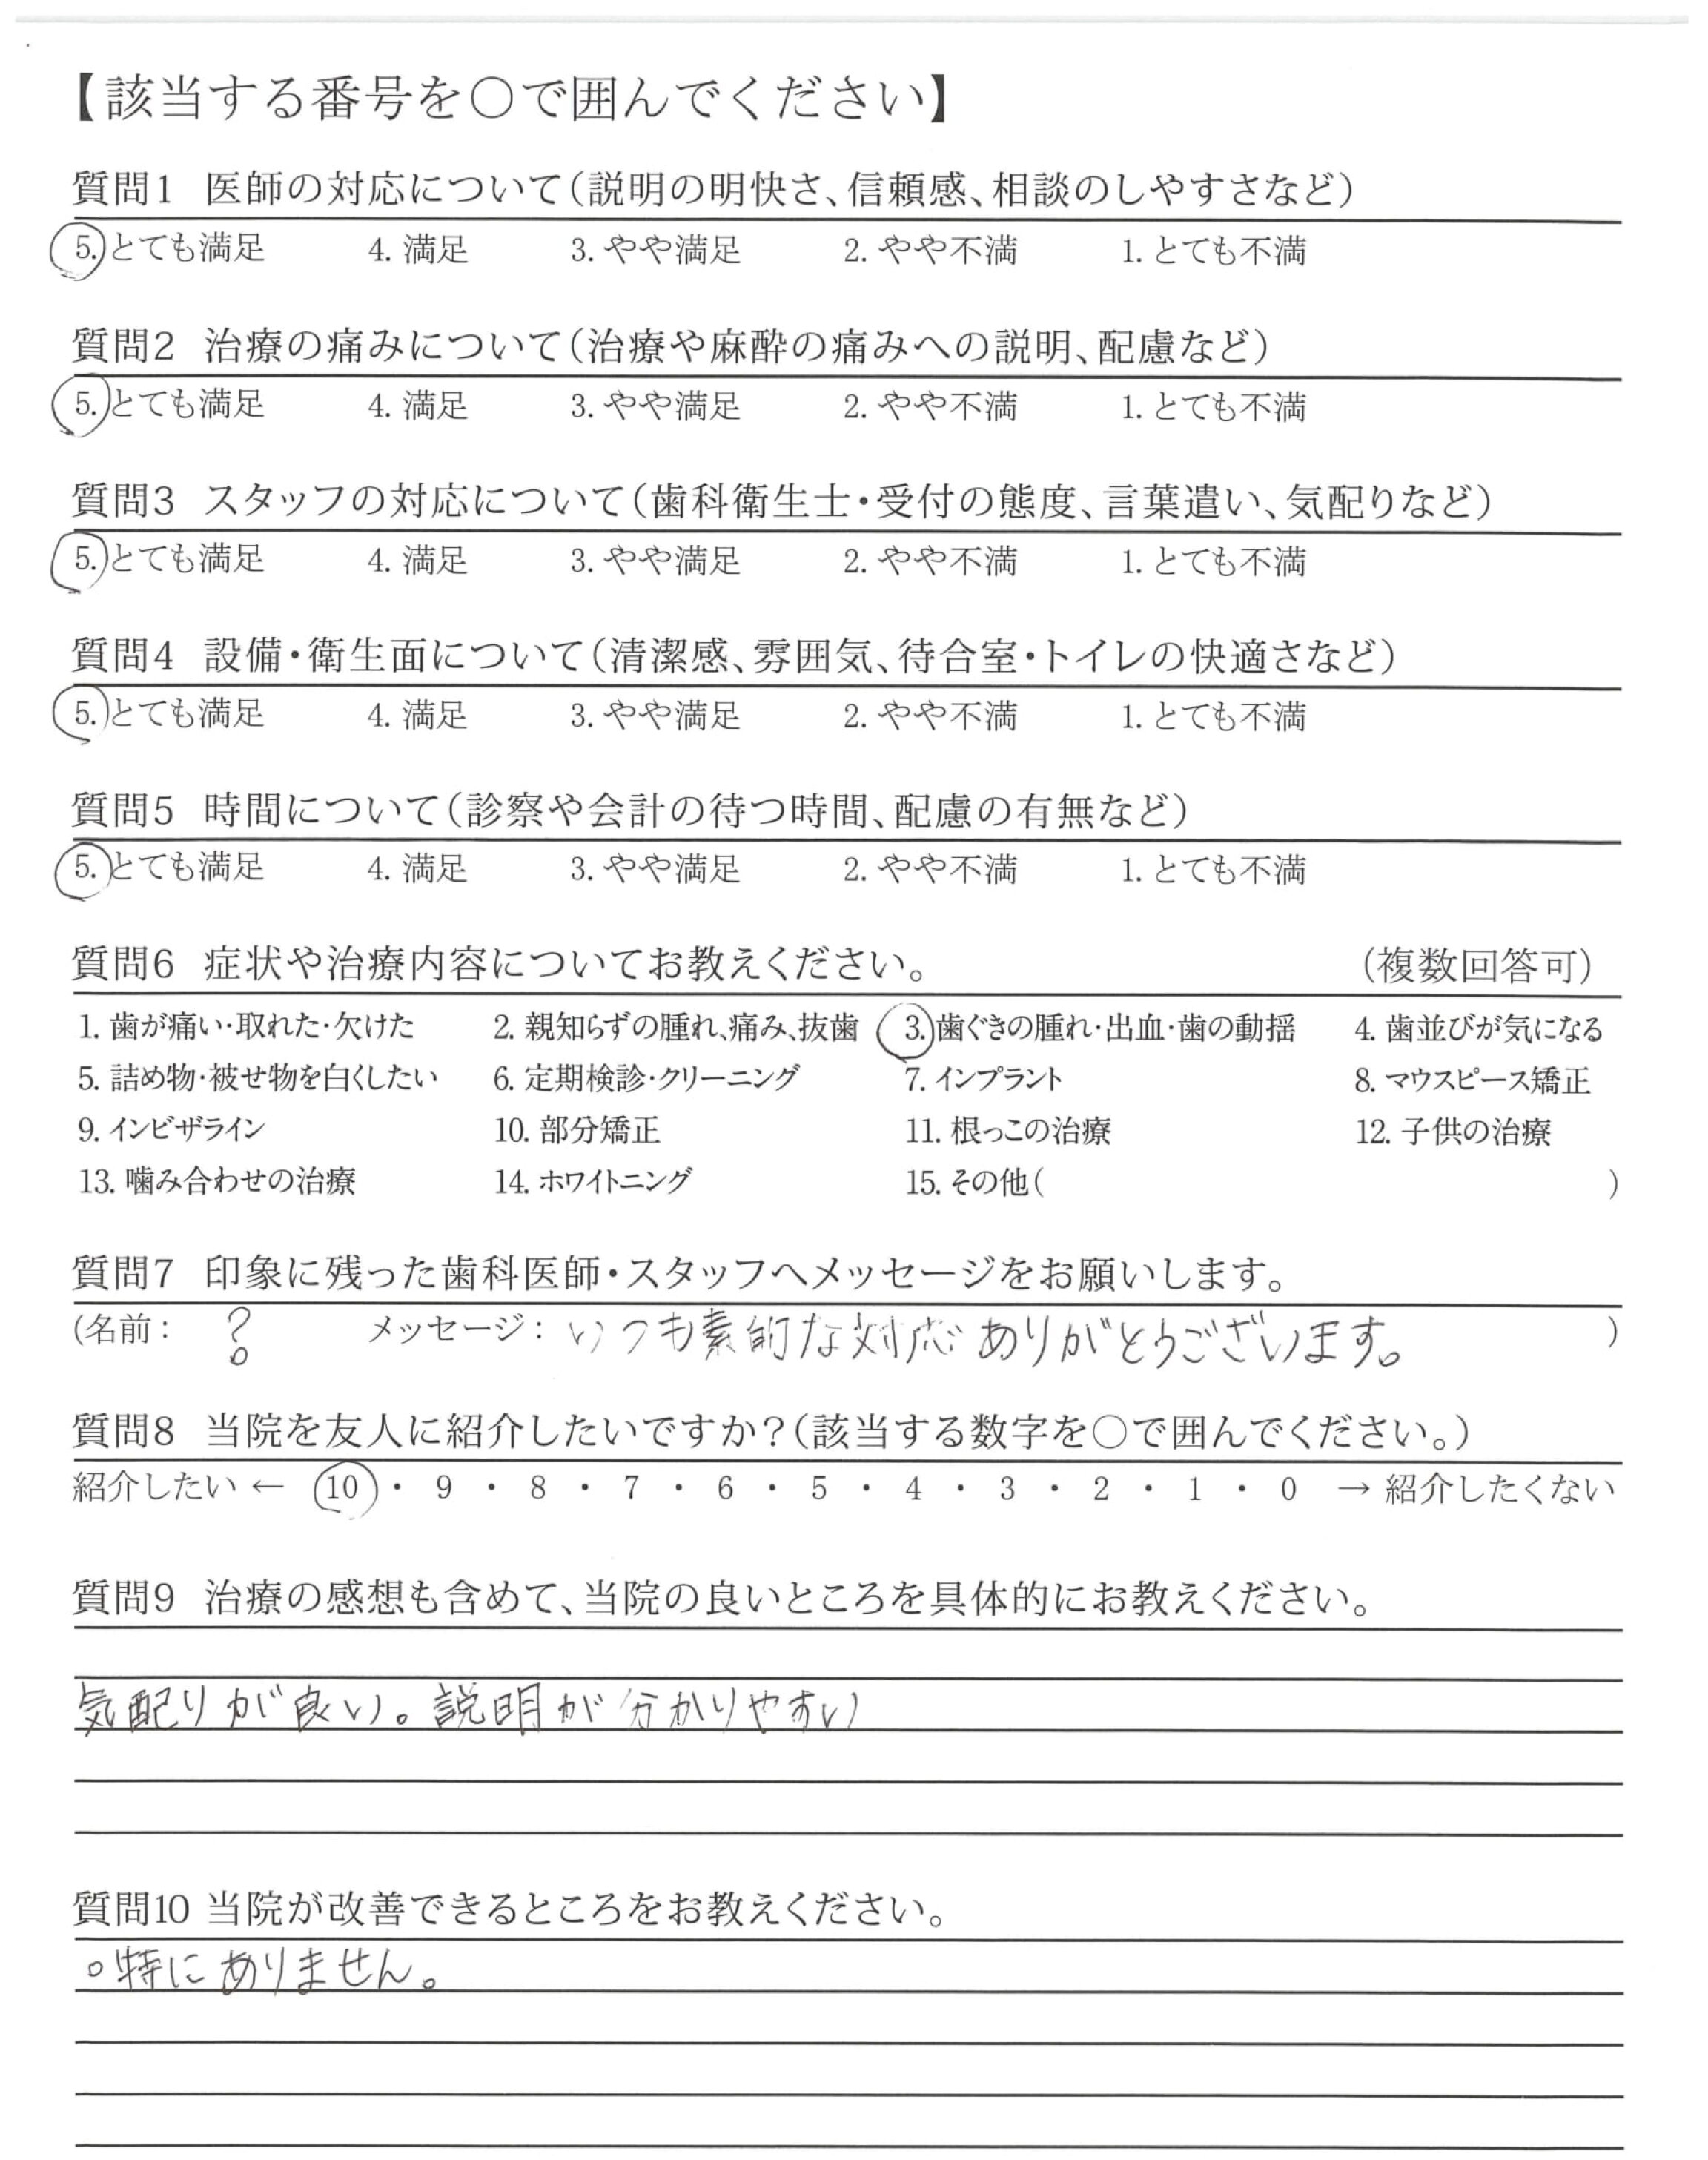 【該当する番号を○で囲んでください】
質問1 医師の対応について(説明の明快さ、信頼感、相談のしやすさなど)
5. とても満足 4. 満足 3. やや満足 2. やや不満 1. とても不満
質問2 治療の痛みについて(治療や麻酔の痛みへの説明、配慮など)
5. とても満足 4. 満足 3. やや満足 2. やや不満 1. とても不満
質問3 スタッフの対応について(歯科衛生士・受付の態度、言葉遣い、気配りなど)
5. とても満足 4. 満足 3. やや満足 2. やや不満 1. とても不満
質問4 設備・衛生面について(清潔感、雰囲気、待合室・トイレの快適さなど)
5. とても満足 4. 満足 3. やや満足 2. やや不満 1. とても不満
質問5 時間について(診察や会計の待つ時間、配慮の有無など)
5. とても満足 4. 満足 3. やや満足 2. やや不満 1. とても不満
質問6 症状や治療内容についてお教えください。 (複数回答可)
1. 歯が痛い・取れた・欠けた 2. 親知らずの腫れ、痛み、抜歯 3. 歯ぐきの腫れ・出血・歯の動揺 4. 歯並びが気になる
5. 詰め物・被せ物を白くしたい 6. 定期検診・クリーニング 7. インプラント 8. マウスピース矯正
9. インビザライン 10. 部分矯正 11. 根っこの治療 12. 子供の治療
13. 噛み合わせの治療 14. ホワイトニング 15. その他( )
質問7 印象に残った歯科医師・スタッフへメッセージをお願いします。
(名前: ? メッセージ: いつも素的な対応ありがとうございます。 )
質問8 当院を友人に紹介したいですか?(該当する数字を○で囲んでください。)
紹介したい ← 10 ・ 9 ・ 8 ・ 7 ・ 6 ・ 5 ・ 4 ・ 3 ・ 2 ・ 1 ・ 0 → 紹介したくない
質問9 治療の感想も含めて、当院の良いところを具体的にお教えください。
気配りが良い。説明が分かりやすい
質問10 当院が改善できるところをお教えください。
○特にありません。